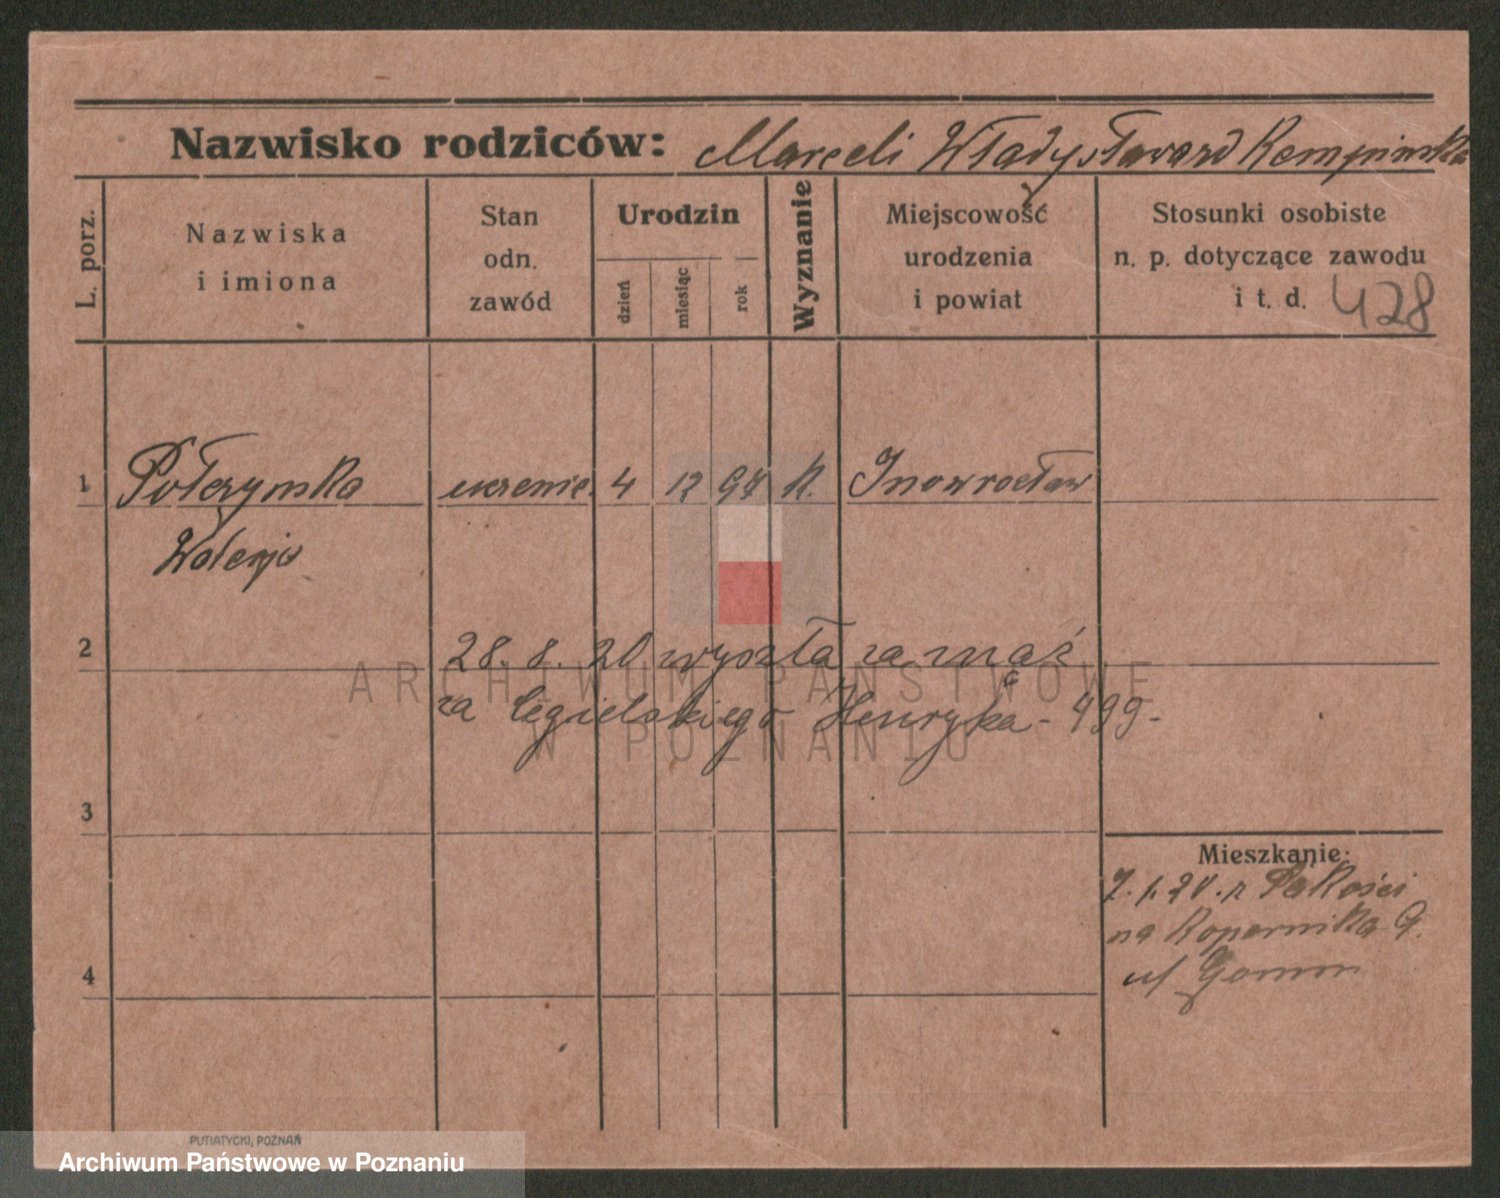 Nazwisko rodziców: Marceli Władysława Kempińska
L. porz.
Nazwiska
i imiona
Stan
odn.
zawód
Urodzin
dzień
miesiąc
rok
Wyznanie
Miejscowość
urodzenia
i powiat
Stosunki osobiste
n. p. dotyczące zawodu
i t. d. 428
1 Połczyńska 4 12 97 k. Inowrocław
Walerja
2
28. 8. 20 wyszła za mąż
za Cegielskiego Henryka - 499 -
3
Mieszkanie:
7. 1. 20. z Pakości
na Kopernika 9.
4
u/
PUTIATYCKI, POZNAŃ
ARCHIWUM PAŃSTWOWE
W POZNANIU
Archiwum Państwowe w Poznaniu